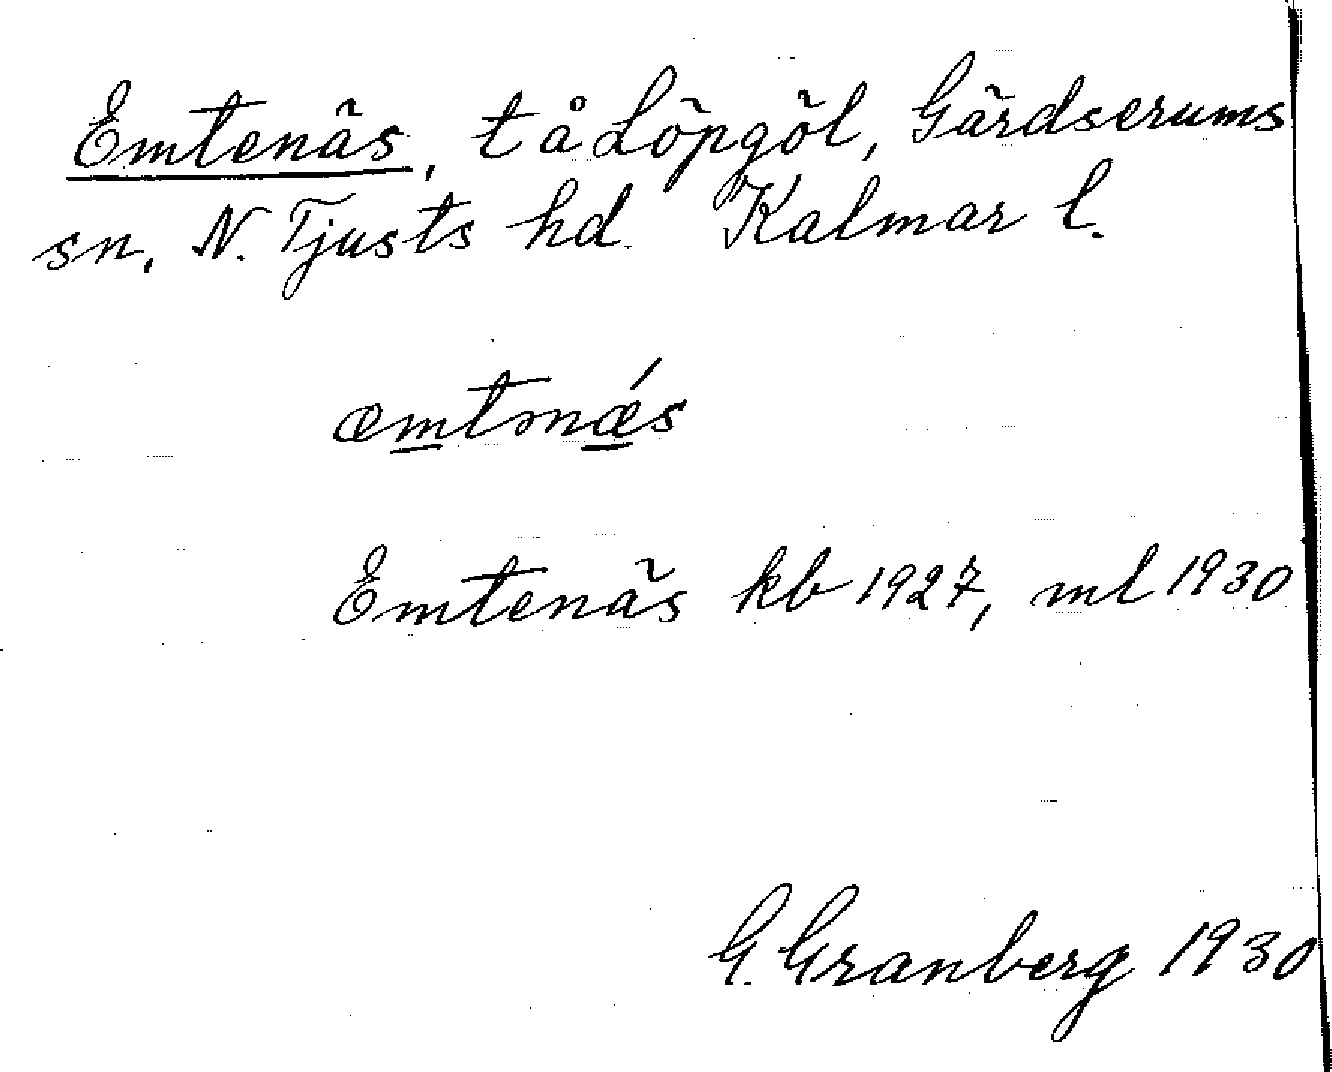 Emtenäs, t å Löpgöl, Gärdserums
sn, N. Tjusts hd. Kalmar l.
æmtənǽs
Emtenäs kb 1927, ml 1930
G. Granberg 1930